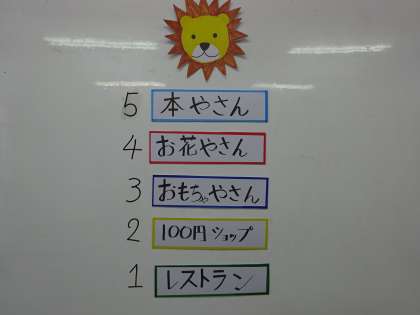 5 本やさん
4 お花やさん
3 おもちゃやさん
2 100円ショップ
1 レストラン